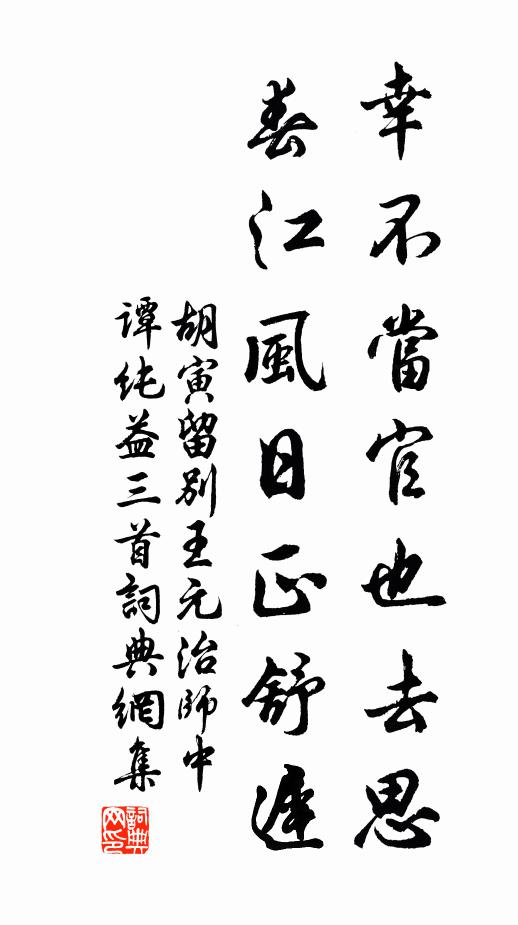 幸不當官也去思
春江風日正舒遲
胡寅留別王元治師中
譚純益三首詞典網集
詞典网印